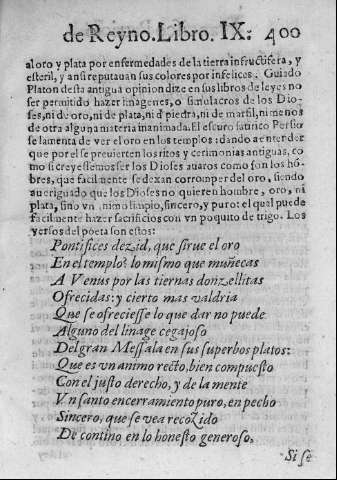 de Reyno. Libro. IX. 400
al oro y plata por enfermedades de la tierra infructifera, y
esteril, y ansi reputauan sus colores por infelices. Guiado
Platon desta antigua opinion dize en sus libros de leyes no
ser permitido hazer imagenes, o simulacros de los Dio-
ses, ni de oro, ni de plata, ni d̃ piedra, ni de marfil, ni menos
de otra alguna materia inanimada. El escuro satirico Persio
se lamenta de ver el oro en los templos: dando a entender
que por el se preuierten los ritos y cerimonias antiguas, co
mo si creyessemos ser los Dioses auaros como son los hõ-
bres, que facilmente se dexan corromper del oro, siendo
aueriguado que los Dioses no quieren hombre, oro, ni
plata, sino vn animo limpio, sincero, y puro: el qual puede
facilmente hazer sacrificios con vn poquito de trigo. Los
versos del poeta son estos:
Pontifices dezid, que sirue el oro
En el templo? lo mismo que muñecas
A Venus por las tiernas donzellitas
Ofrecidas: y cierto mas valdria
Que se ofreciesse lo que dar no puede
Alguno del linage cegajoso
Del gran Messala en sus superbos platos:
Que es vn animo recto, bien compuesto
Con el justo derecho, y de la mente
Vn santo encerramiento puro, en pecho
Sincero, que se vea recozido
De contino en lo honesto generoso,
Si se